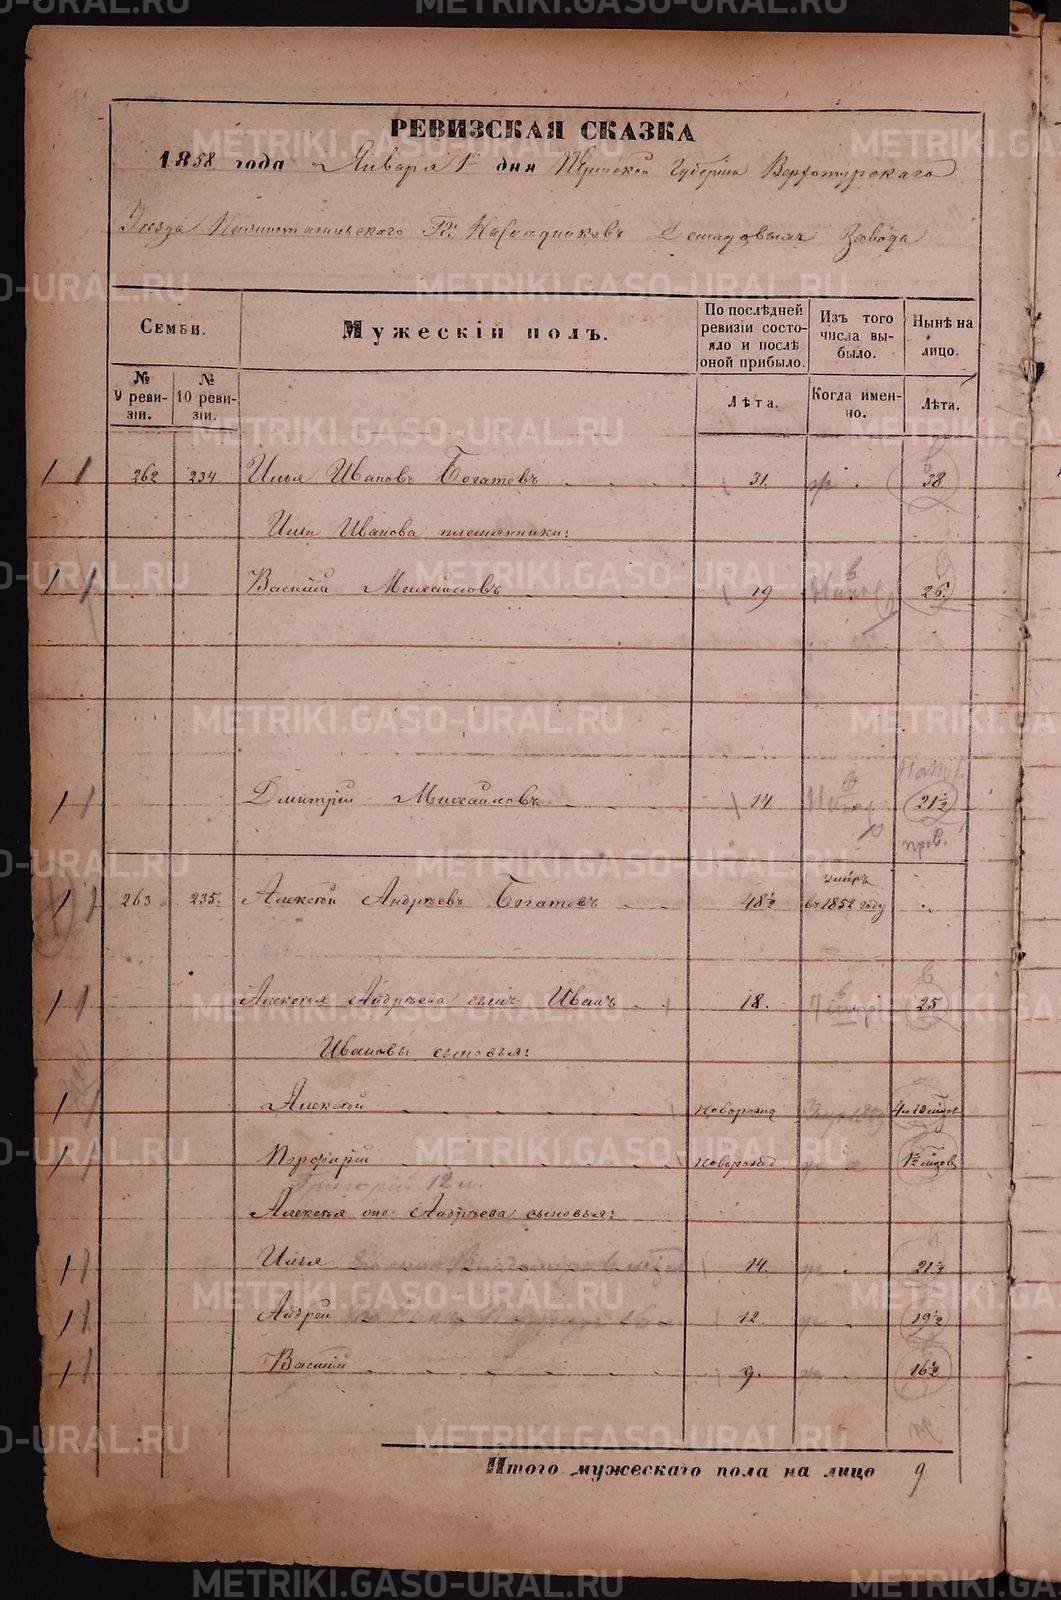 РЕВИЗСКАЯ СКАЗКА
1858 года Января 1го дня Пермской Губернiи Верхотурскаго
Уезда Нижнотагильскаго Гг: Наследниковъ Демидовыхъ завода
Семьи.
Мужескiй полъ.
По послѣдней ревизiи состояло и послѣ оной прибыло.
Изъ того числа выбыло.
Нынѣ на лицо.
№ 9 ревизiи.
№ 10 ревизiи.
Лѣта.
Когда именно.
Лѣта.
262 234 Илья Ивановъ Богатовъ 31. 38
Ильи Иванова племянники:
Василiй Михайловъ 19 26.
Дмитрiй Михайловъ 14 21½
пров.
263 235. Алексѣй Андрѣевъ Богатовъ 48½ умеръ въ 1852 году
Алексѣя Андрѣева сынъ Иванъ 18. 25
Ивановы сыновья:
Алексѣй новорожд
Порфирiй новорожд
Григорiй 12 м.
Алексѣя она Андрѣева сыновья:
Илья 14. 21½
Андрей 12. 19½
Василiй 9. 16½
Итого мужескаго пола на лицо 9
METRIKI.GASO-URAL.RU